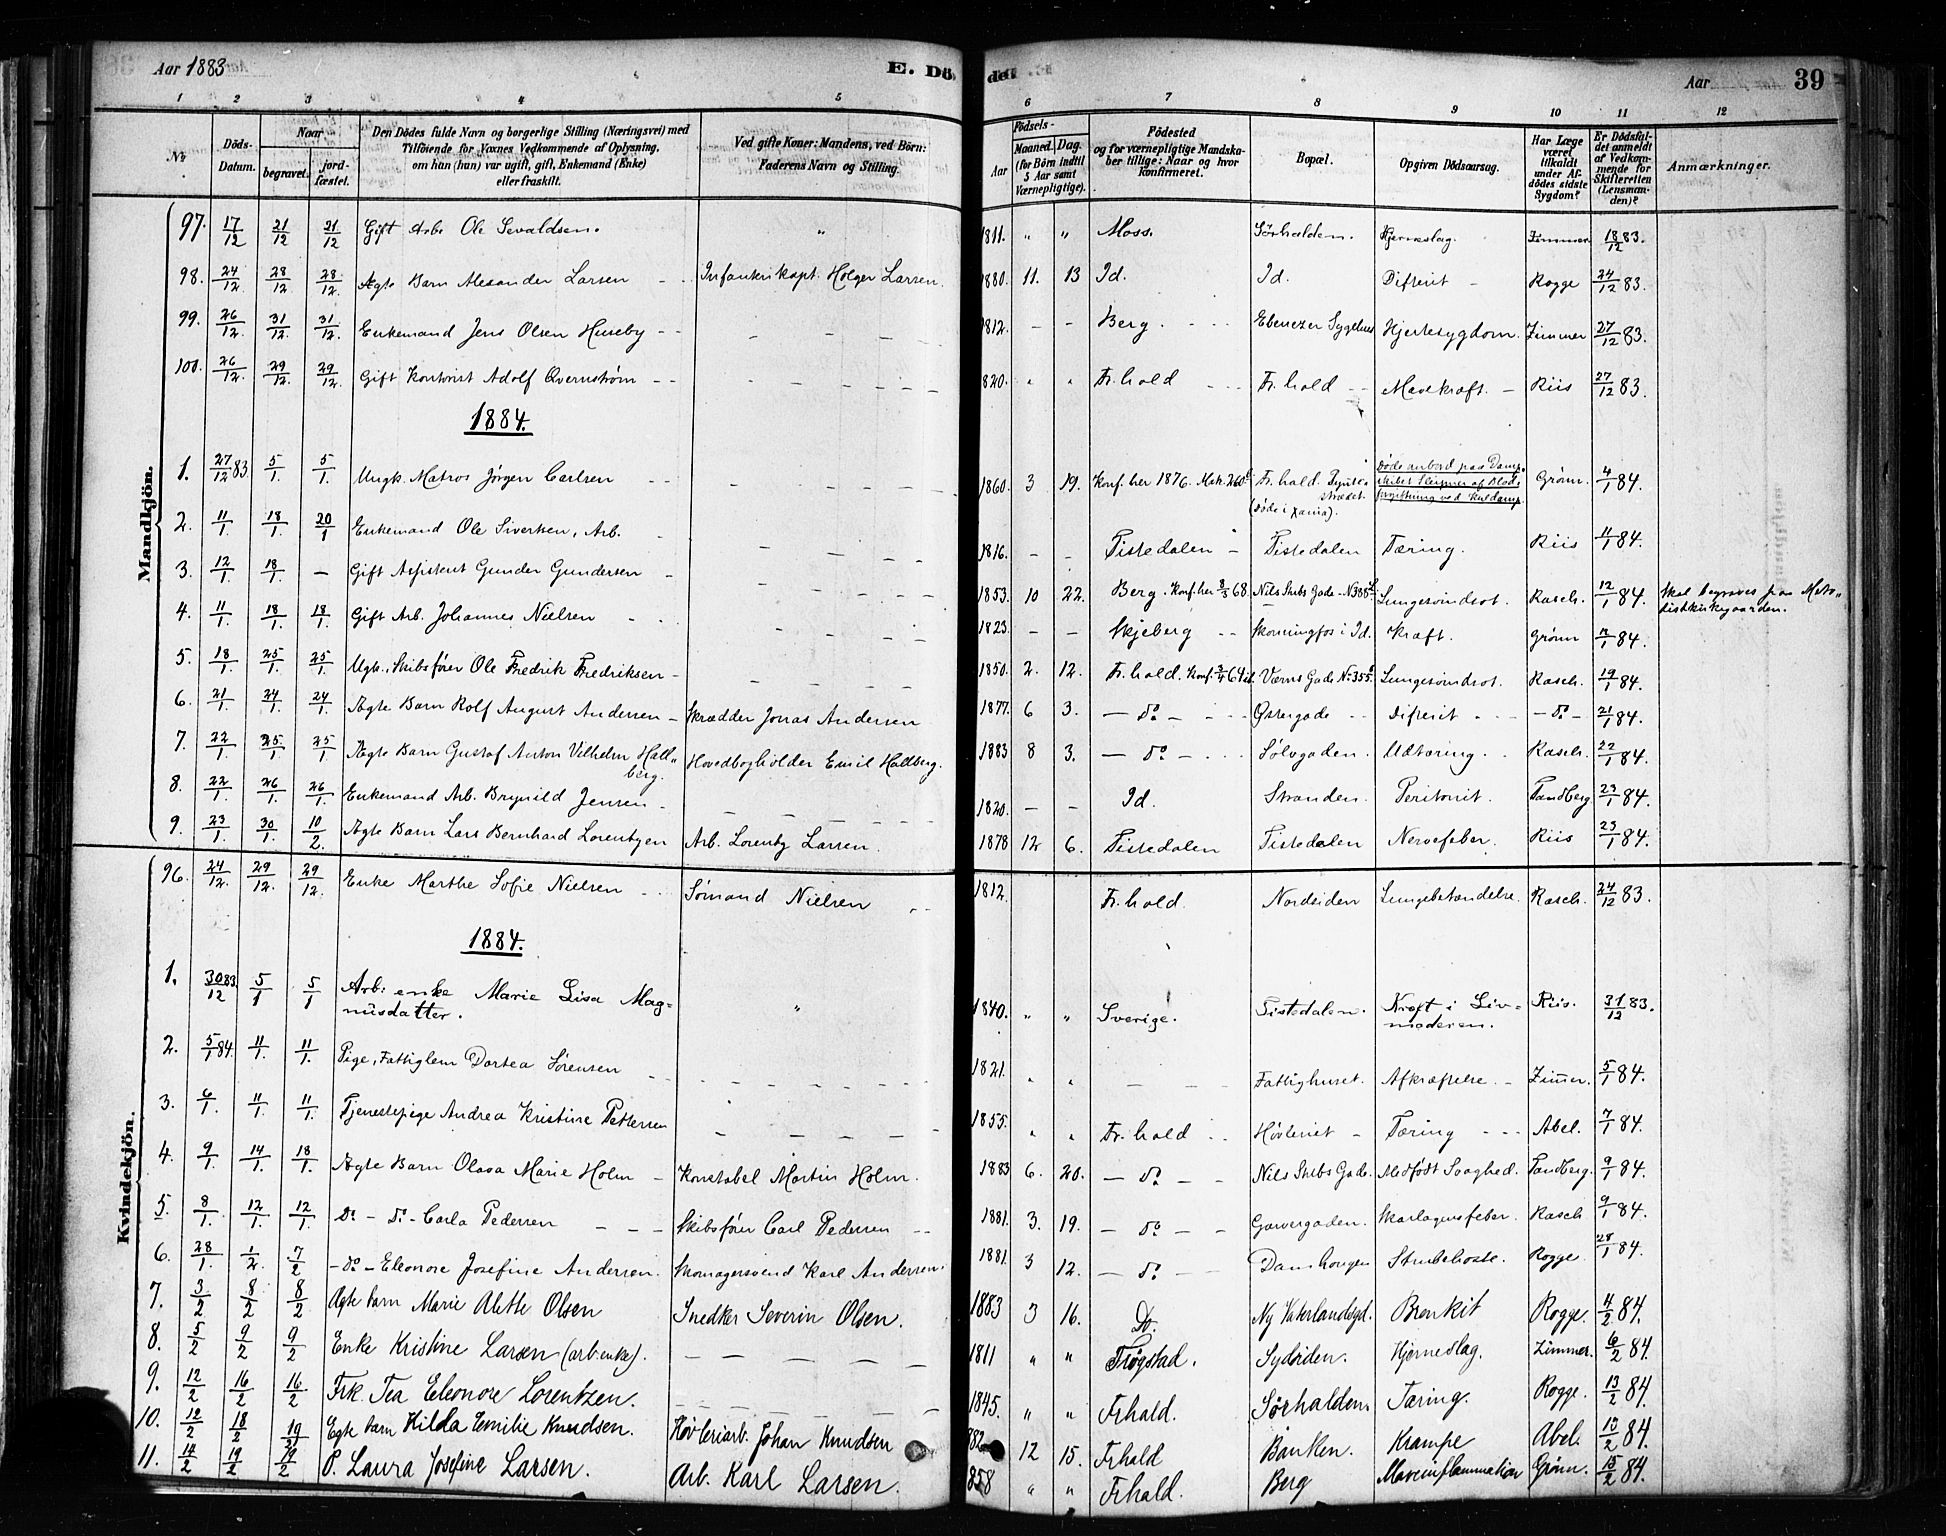 Aar 1883 E. Dö de. Aar 39
1 2 3 4 5 6 7 8 9 10 11 12
No. Döds-Datum. Naar begravet. jordfæstet. Den Dödes fulde Navn og borgerlige Stilling (Næringsvei) med Tilföiende for Voxnes Vedkommende af Oplysning, om han (hun) var ugift, gift, Enkemand (Enke) eller fraskilt. Ved gifte Koner: Mandens, ved Börn: Faderens Navn og Stilling. Födsels- Aar Maaned. Dag. (for Börn indtil 5 Aar samt Værnepligtige). Födested og for værnepligtige Mandskaber tillige: Naar og hvor konfirmeret. Bopæl. Opgiven Dödsaarsag. Har Læge været tilkaldt under Afdödes sidste Sygdom? Er Dödsfaldet anmeldt af Vedkommende for Skifteretten (Lensmanden)? Anmærkninger.
Mandkjön.
97. 17/12 21/12 21/12 Gift Arb. Ole Sevaldsen. " 1811. " " Moss. Sörhalden. Hjerneslag. Zimmer 18/12 83.
98. 24/12 28/12 28/12 Ægte Barn Alexander Larsen Infanterikapt. Holger Larsen. 1880. 11. 13 Id. Id. Difterit Rogge 24/12 83.
99. 26/12 31/12 31/12 Enkemand Jens Olsen Huseby 1812. Berg. Ebenezer Sygehus Hjertesygdom. Zimmer 27/12 83.
100. 26/12 29/12 29/12 Gift Kontorist Adolf Qvernström 1820. " " Fr.hald Fr.hald Mavekræft. Riis 27/12 83.
1884.
1. 27/12 83 5/1 5/1 Ungk. Matros Jørgen Carlsen 1860. 3 19. Konf. her 1876. Fr.hald. (døde i Xania). Døde anbord paa Dampskibet Sleipner af Blodforgiftning ved Kuldamp. Grønn. 4/1 84.
2. 11/1 18/1 20/1 Enkemand Ole Sivertsen, Arb. 1816. Tistedalen Tistedalen Tæring. Riis 11/1 84.
3. 12/1 18/1 – Gift Assistent Gunder Gundersen 1853. 10 22. Berg. Konf. her 8/3 68. Nils Stubs Gade Lungesvindsot. Rasch. 12/1 84. Skal begraves paa Metodistkirkegaarden.
4. 11/1 18/1 18/1 Gift Arb. Johannes Nielsen 1823. Skjeberg Skonningfos i Id. Kræft. Grønn 12/1 84.
5. 18/1 25/1 25/1 Ugk. Skibsfører Ole Fredrik Fredriksen 1850. 2. 12. Fr.hald. Værns Gade No 355. Lungesvindsot. Rasch. 19/1 84.
6. 21/1 24/1 24/1 Ægte Barn Rolf August Andersen Skrædder Jonas Andersen 1877. 6 3. do Østergade Difterit do 21/1 84.
7. 22/1 25/1 25/1 Ægte Barn Gustaf Anton Vilhelm Hallberg. Hovedbogholder Emil Hallberg. 1883 8 3. do Sølvgaden. Udtæring. Rasch. 22/1 84.
8. 22/1 26/1 26/1 Enkemand Arb. Brynild Jensen 1820. Id. Stranden. Peritonit. Tandberg 23/1 84.
9. 23/1 30/1 10/2 Ægte Barn Lars Bernhard Lorentzen Arb. Lorentz Larsen. 1878 12 6. Tistedalen Tistedalen Nervefeber. Riis 23/1 84.
Kvindekjön.
96. 24/12 29/12 29/12 Enke Marthe Sofie Nielsen Sømand Nielsen 1812. Fr.hald. Nordsiden Lungebetændelse. Rasch. 24/12 83.
1884.
1. 30/12 83 5/1 5/1 Arb: enke Marie Lisa Magnusdatter. " 1840. " " Sverige. Tistedalen. Kræft i Livmoderen. Riis. 31/12 83.
2. 5/1 84. 11/1. 11/1. Pige, Fattiglem Dortea Sørensen 1821. " " Fattighuset. Afkræftelse. Zimmer. 5/1 84.
3. 6/1. 11/1. 11/1. Tjenestepige Andrea Kristine Pettersen 1855. " " Fr.hald Høvleriet Tæring Abel. 7/1 84.
4. 9/1. 14/1. 18/1. Ægte Barn Olava Marie Holm Konstabel Martin Holm. 1883 6. 20. do Nils Stubs Gade. Medfødt Svaghed. Tandberg. 9/1 84.
5. 8/1. 12/1. 12/1. Do do Carla Pedersen Skibsfører Carl Pedersen 1881. 3. 19. do Garvergaden. Skarlagensfeber. Rasch 9/1 84.
6. 28/1. 1/2. 7/2 do Eleonore Josefine Andersen. Skomagersvend Karl Andersen. 1881. 3 12. do Damhaugen Strubehoste. Rogge. 28/1 84.
7. 3/2 8/2 8/2 Ægte barn Marie Alette Olsen Snedker Severin Olsen. 1883 3 16. Do. Ny Vaterlandsgd. Bronkit Rogge. 4/2 84.
8. 5/2 9/2 9/2 Enke Kristine Larsen (arb.enke). 1811 " " Trøgstad. Sydsiden. Hjerneslag. Zimmer. 6/2 84.
9. 12/2 16/2 16/2 Frk. Tea Eleonore Lorentzen. 1845. " " Frhald. Sørhalden. Tæring. Rogge. 13/2 84.
10. 12/2 18/2 19/2 Egte barn Hilda Emilie Knudsen. Høvleriarb. Johan Knudsen 82 12 15. Frhald Banken. Krampe Abel. 13/2 84.
11. 14/2 19/2 19/2 P. Laura Josefine Larsen. Arb. Karl Larsen. 858 " " Frhald. Berg Maveinflammation Grønn. 15/2 84.